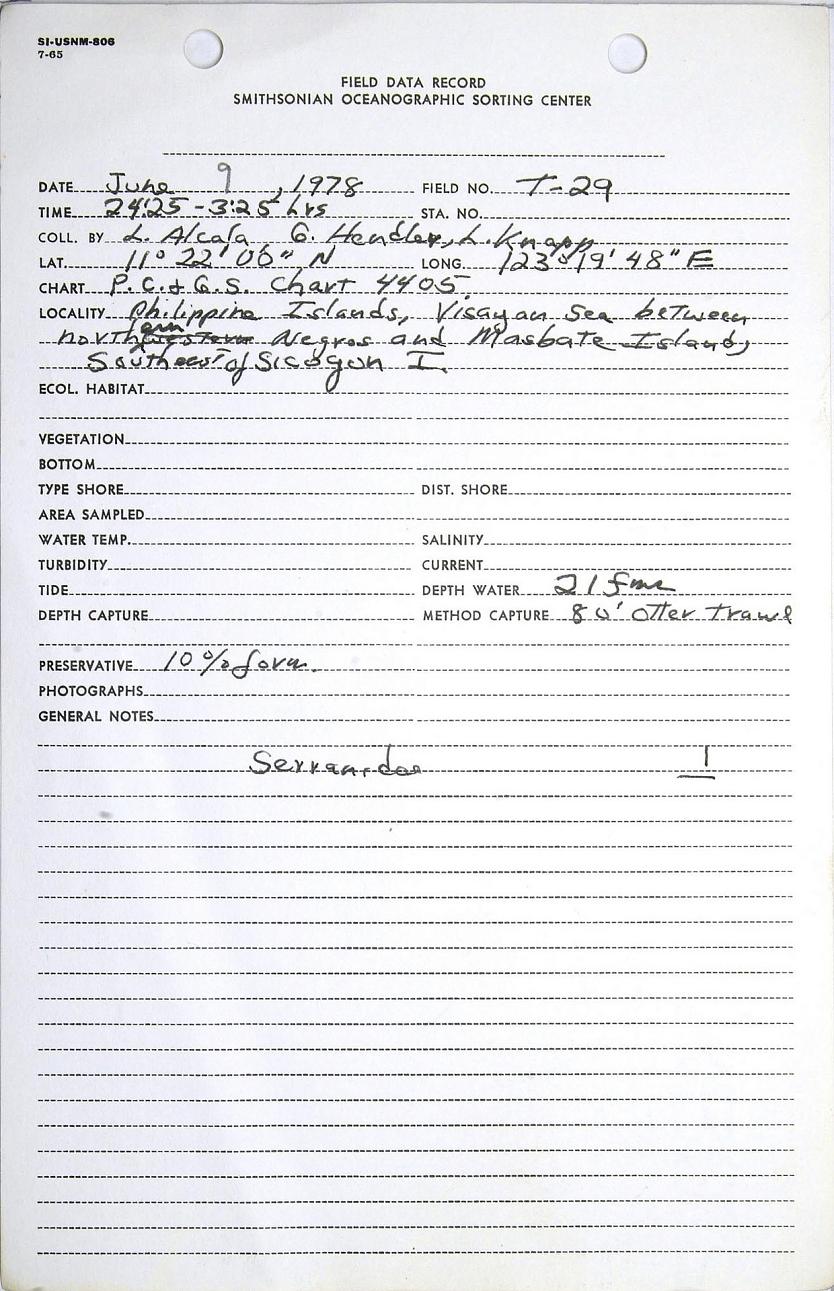 SI-USNM-806
7-65
FIELD DATA RECORD
SMITHSONIAN OCEANOGRAPHIC SORTING CENTER
DATE June 9, 1978 FIELD NO. T-29
TIME 24:25-3:25 hrs STA. NO.
COLL. BY L. Alcala G. Hendler, L. Knapp
LAT. 11° 22' 06" N LONG 123° 19' 48" E
CHART P.C. & G.S. Chart 4405
LOCALITY Philippine Islands, Visayan Sea between
northern Negros and Masbate Islands,
Southeast of Sicogon I.
ECOL. HABITAT
VEGETATION
BOTTOM
TYPE SHORE DIST. SHORE
AREA SAMPLED
WATER TEMP. SALINITY
TURBIDITY CURRENT
TIDE DEPTH WATER 21 fms
DEPTH CAPTURE METHOD CAPTURE 80' otter trawl
PRESERVATIVE 10% form.
PHOTOGRAPHS
GENERAL NOTES
Serranidae 1